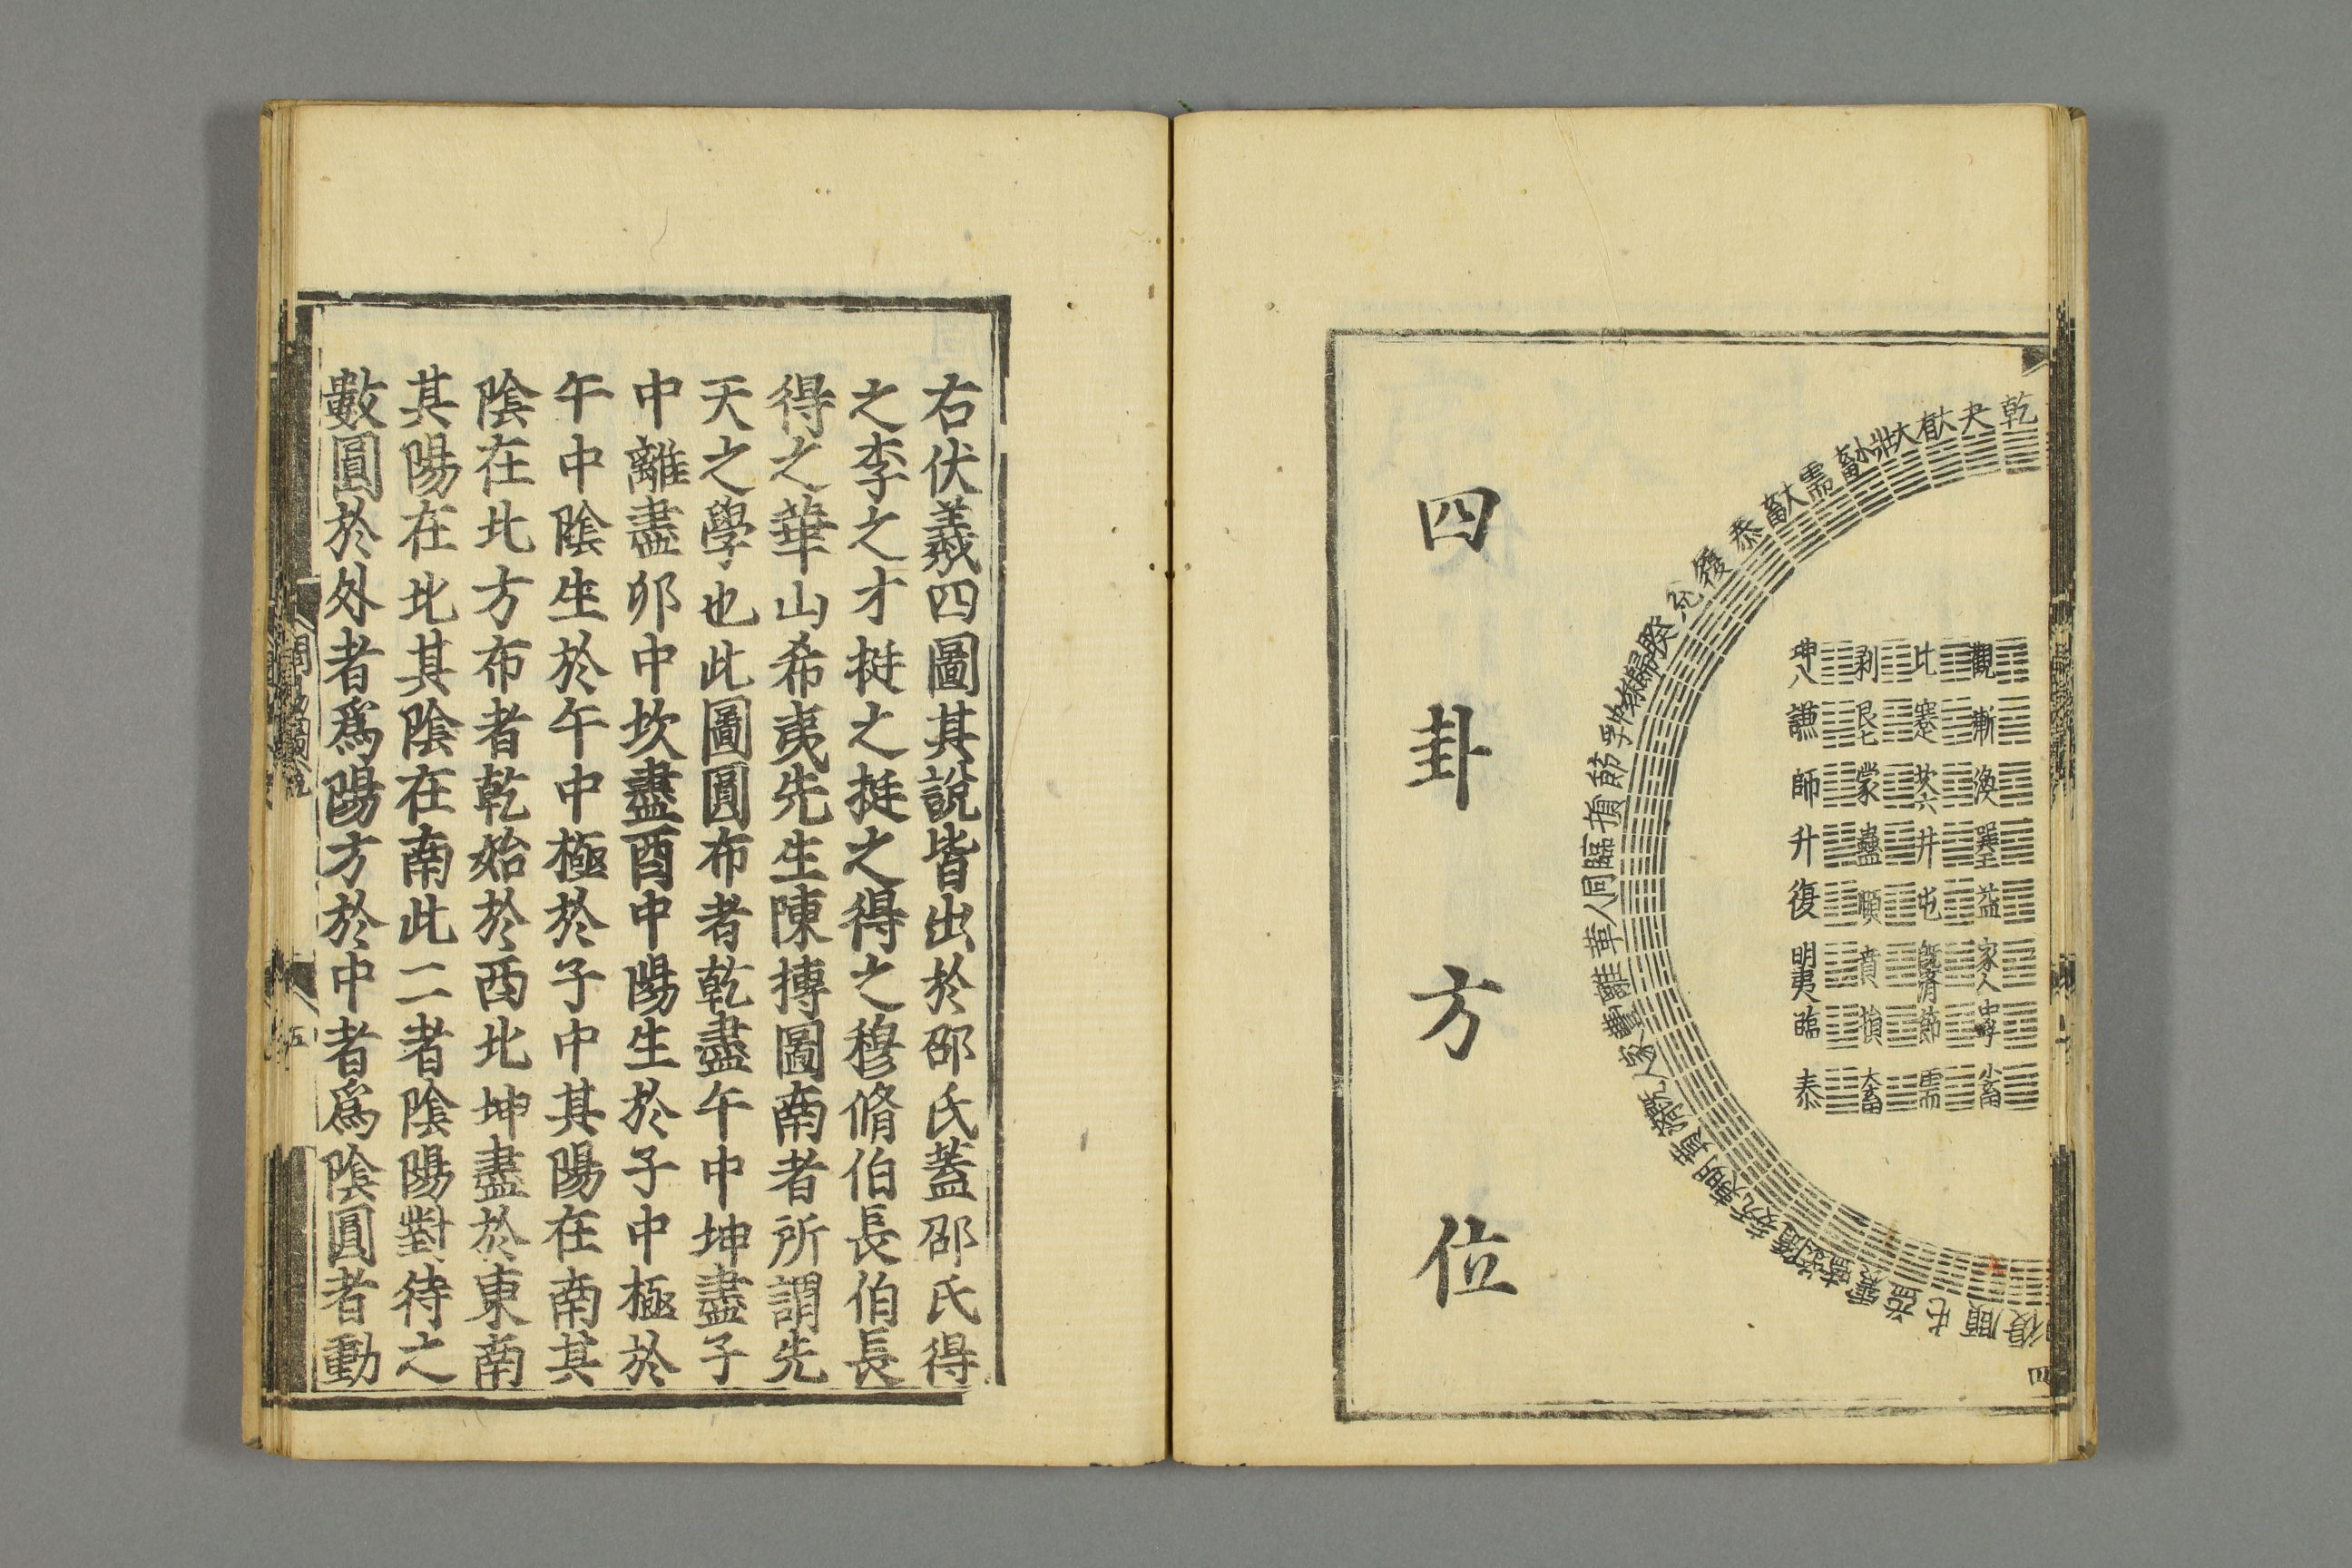 四卦方位
乾
夬
大有
大壯
小畜
需
大畜
泰
履
兌
睽
歸妹
中孚
節
損
臨
同人
革
離
豐
家人
既濟
賁
明夷
无妄
隨
噬嗑
震
益
屯
頤
復
觀
漸
渙
巽五
益
家人
中孚
小畜
比
蹇
坎六
井
屯
既濟
節
需
剥
艮七
蒙
蠱
頤
賁
損
大畜
坤八
謙
師
升
復
明夷
臨
泰
四
右伏羲四圖其說皆出於邵氏蓋邵氏得
之李之才挺之挺之得之穆脩伯長伯長
得之華山希夷先生陳摶圖南者所謂先
天之學也此圖圓布者乾盡午中坤盡子
中離盡卯中坎盡酉中陽生於子中極於
午中陰生於午中極於子中其陽在南其
陰在北方布者乾始於西北坤盡於東南
其陽在北其陰在南此二者陰陽對待之
數圓於外者爲陽方於中者爲陰圓者動
五